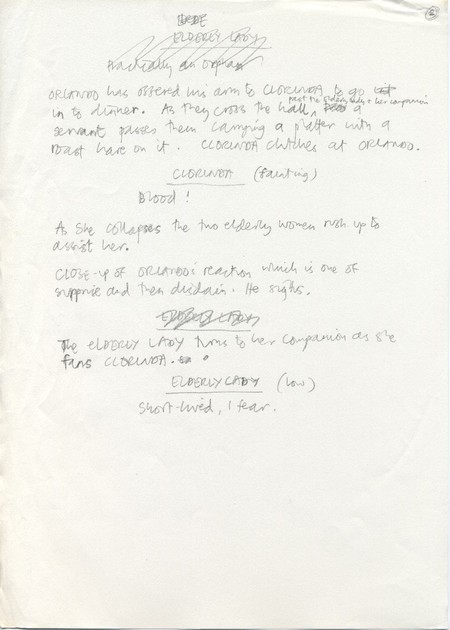 6
ELDERLY LADY
Practically an orphan
ORLANDO has offered his arm to CLORINDA to go
in to dinner. As they cross the hall, past the elderly lady + her companion a
servant passes them carrying a platter with a
roast hare on it. CLORINDA clutches at ORLANDO.
CLORINDA (fainting)
Blood!
As she collapses the two elderly women rush up to
assist her.
CLOSE-UP of ORLANDO's reaction which is one of
supprise and then disdain. He sighs.
ELDERLY LADY
The ELDERLY LADY turns to her companion as she
fans CLORINDA.
ELDERLY LADY (low)
Short-lived, I fear.